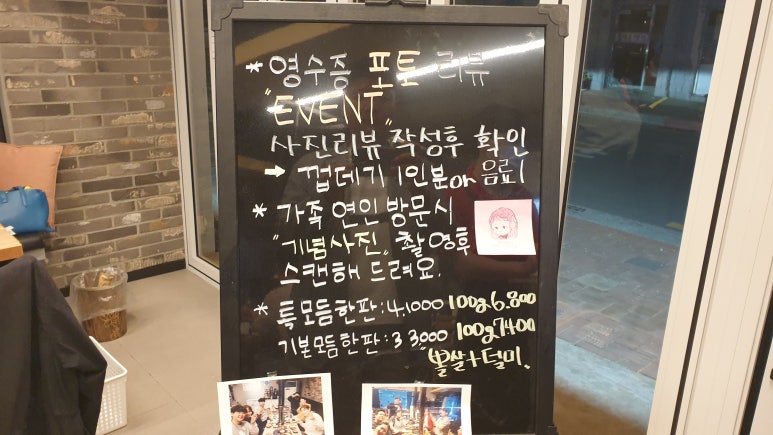 * 영수증 포토 리뷰
"EVENT"
사진리뷰 작성후 확인
→ 껍데기 1인분 or 음료1
* 가족 연인 방문시
"기념사진" 촬영후
스캔해 드려요.
* 특모듬한판 : 4,1000 100g 6,800
기본모듬한판 : 3 3,000 100g 7400
"볼살+덜미"